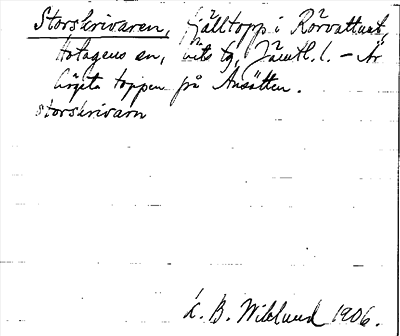 Storskrivaren, fjälltopp i Rörvattnet,
Hotagens sn, Jämtl. l. – Är
högsta toppen på Ansätten.
storskrivarn
K. B. Wiklund 1906.